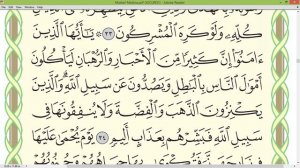 كُلِّهِۦ وَلَوْ كَرِهَ ٱلْمُشْرِكُونَ ۝٣٣ يَٰٓأَيُّهَا ٱلَّذِينَ
ءَامَنُوٓا۟ إِنَّ كَثِيرًا مِّنَ ٱلْأَحْبَارِ وَٱلرُّهْبَانِ لَيَأْكُلُونَ
أَمْوَٰلَ ٱلنَّاسِ بِٱلْبَٰطِلِ وَيَصُدُّونَ عَن سَبِيلِ ٱللَّهِ وَٱلَّذِينَ
يَكْنِزُونَ ٱلذَّهَبَ وَٱلْفِضَّةَ وَلَا يُنفِقُونَهَا فِى
سَبِيلِ ٱللَّهِ فَبَشِّرْهُم بِعَذَابٍ أَلِيمٍ ۝٣٤ يَوْمَ يُحْمَىٰ عَلَيْهَا